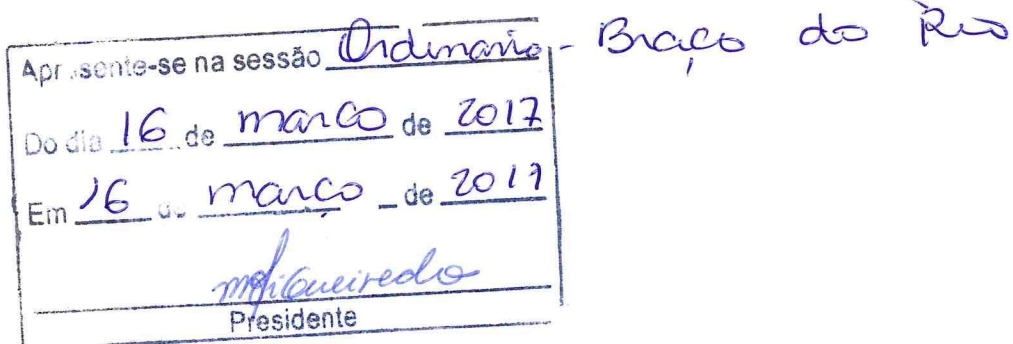 Apresente-se na sessão Ordinaria - Braço do Rio
Do dia 16 de março de 2017
Em 16 de março de 2017
mfigueiredo
Presidente